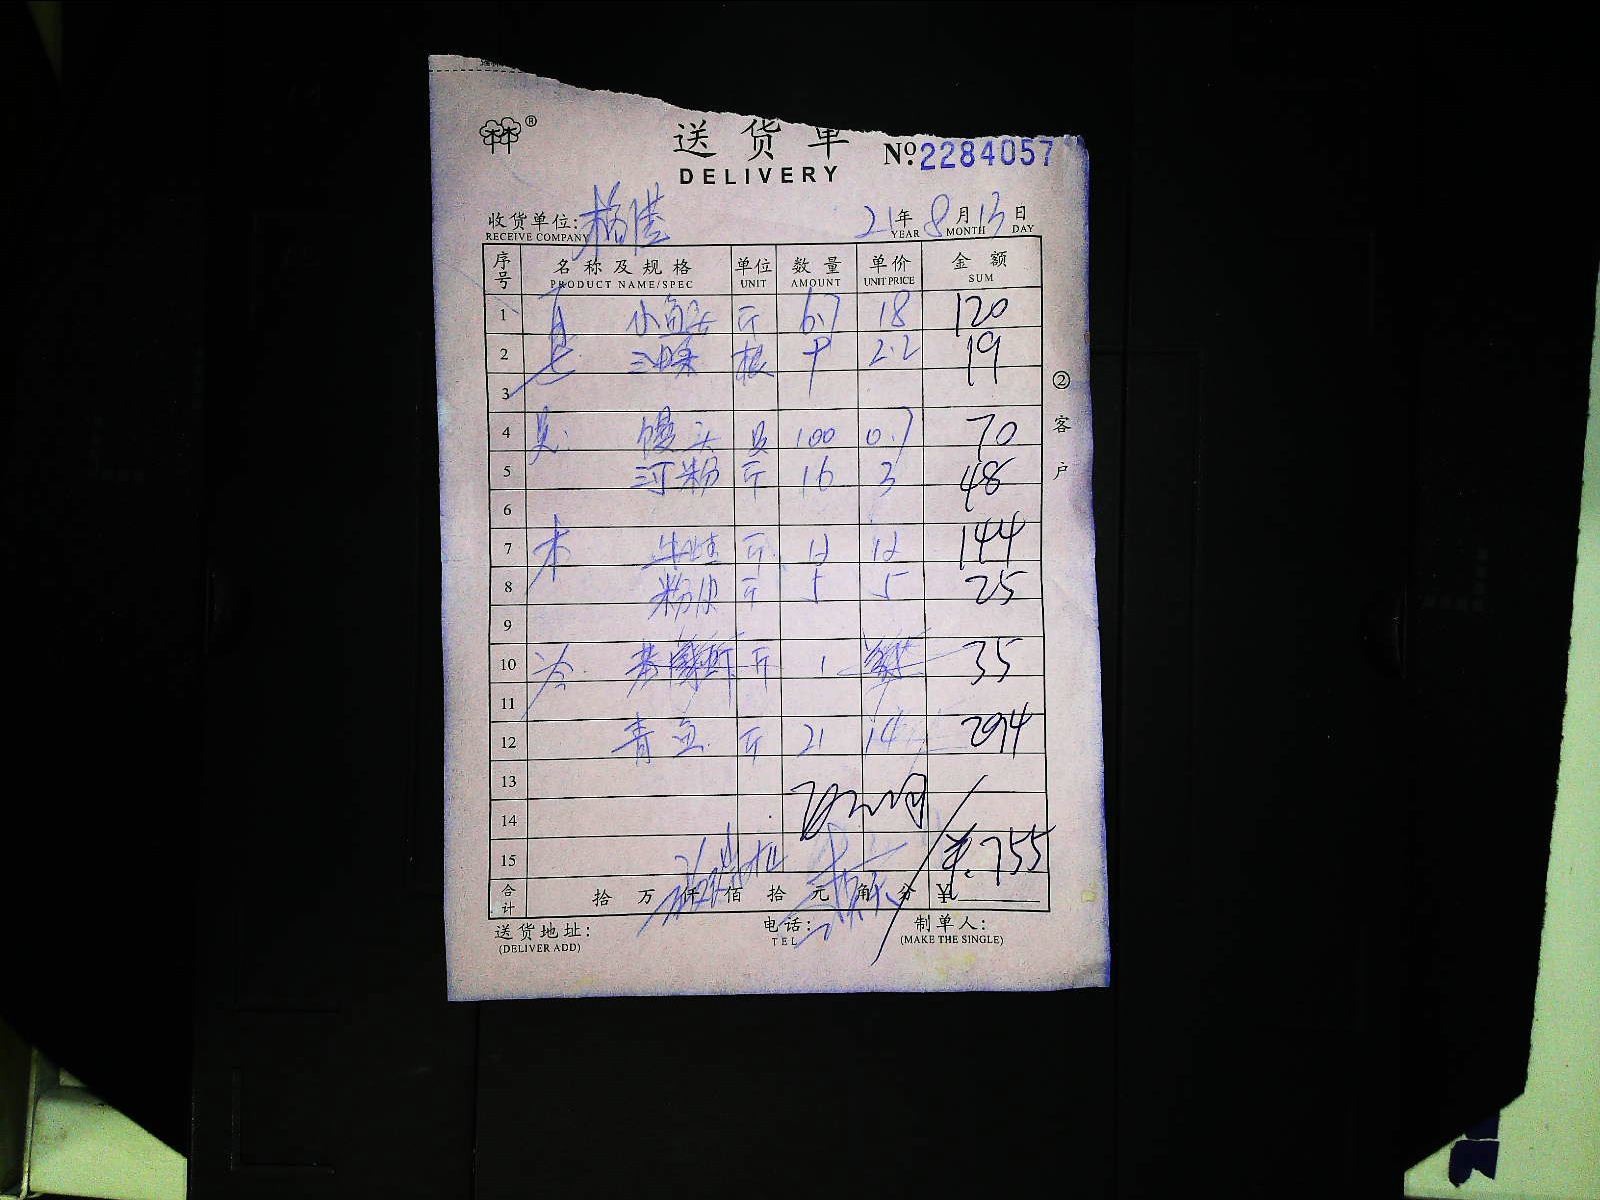 送货单
№ 2284057
DELIVERY
收货单位: 21年8月13日
RECEIVE COMPANY YEAR MONTH DAY
序号 名称及规格 单位 数量 单价 金额
PRODUCT NAME/SPEC UNIT AMOUNT UNIT PRICE SUM
1 小鱼头 斤 6.7 18 120
2 根 2.2 19
3
4 馒头 100 0.7 70
5 河粉 斤 16 3 48
6
7 本 牛蛙 斤 12 12 144
8 粉皮 斤 5 5 25
9
10 冷 斤 1 35
11
12 青鱼 斤 21 14 294
13
14
15 ¥.755
合计 拾 万 仟 佰 拾 元 角 分 ¥
送货地址: 电话: 制单人:
(DELIVER ADD) TEL (MAKE THE SINGLE)
②客户